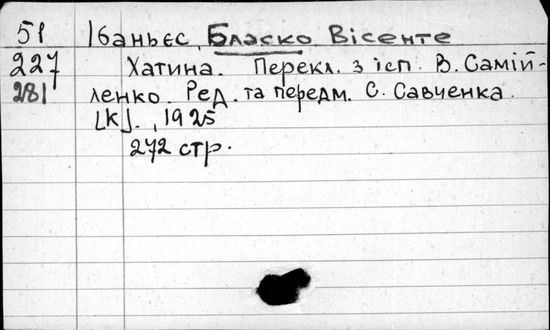 51 Ібаньєс, Бласко Вісенте
227 Хатина. Перекл. з ісп. В. Самій-
281 ленко. Ред. та передм. С. Савченка.
[К]., 1925
272 стр.